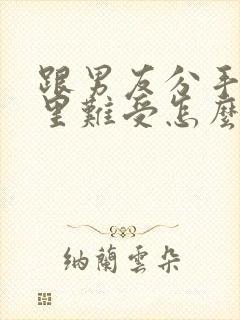 跟男友分手
里難受怎麼
納蘭雲朵